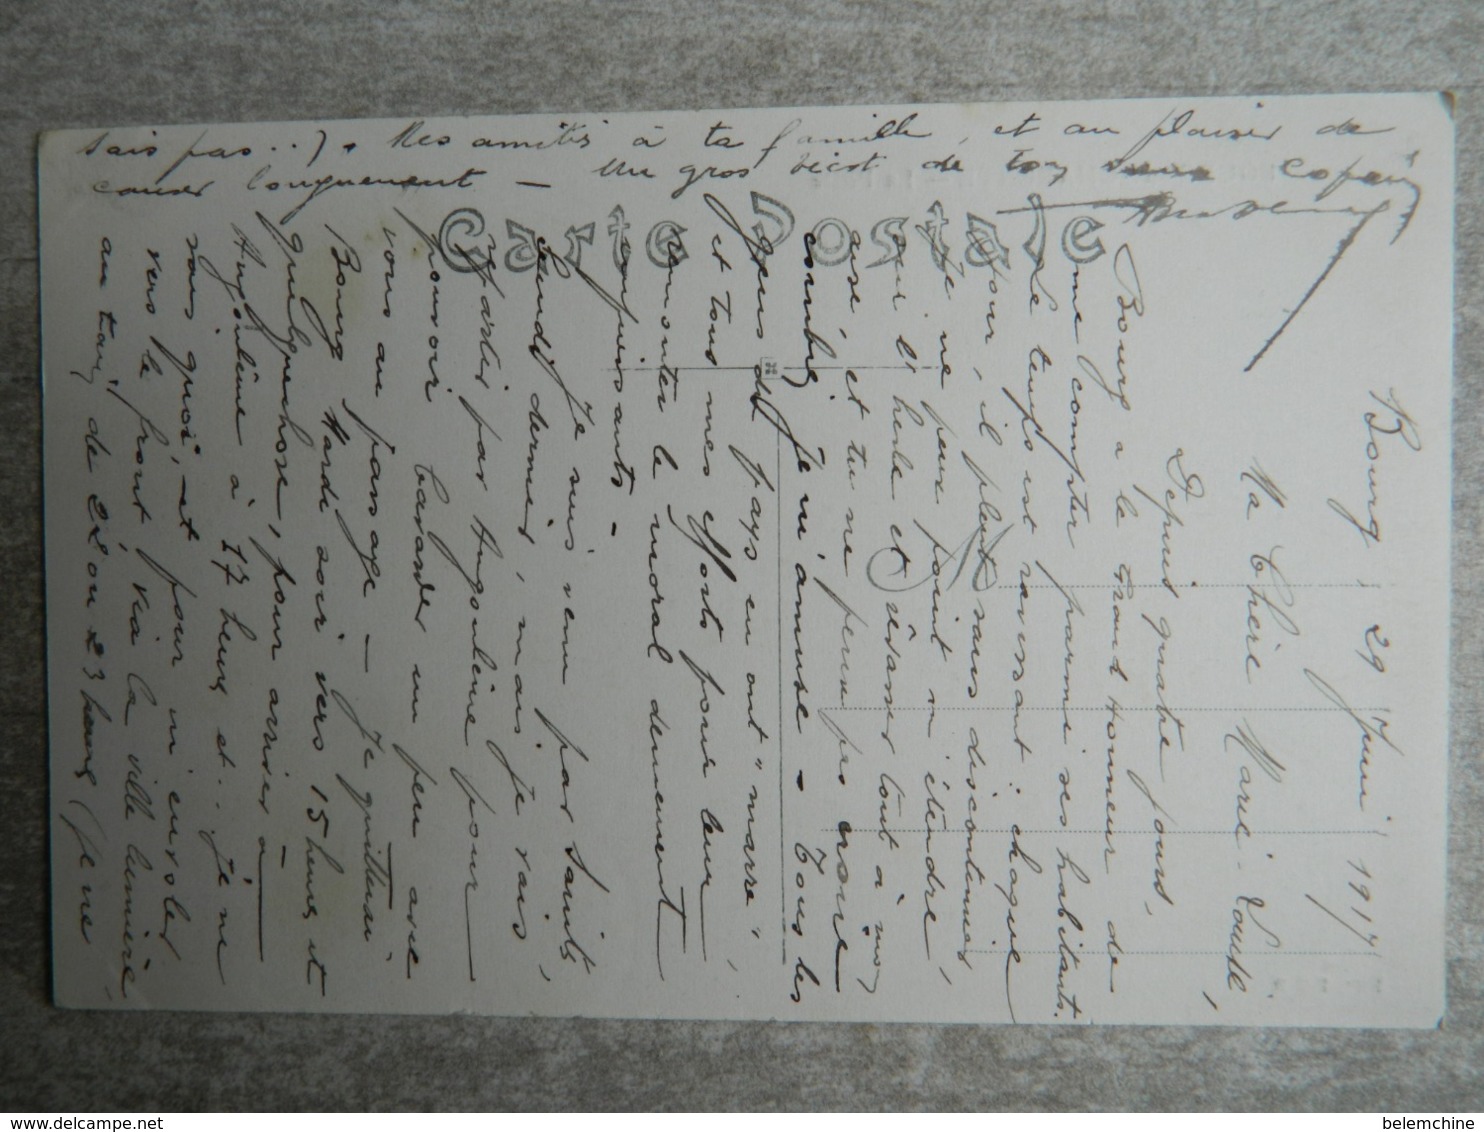 Bourg 29 Juin 1917
Ma Chère Marie-Louise,
Depuis quatre jours,
Bourg a le grand Honneur de
me compter parmi ses habitants.
Le temps est ravissant : chaque
jour, il pleut sans discontinuer
Je ne peux point m'étendre,
sur l'herbe et rêvasser tout à mon
aise, et tu ne peux pas croire
combien je m'amuse - Tous les
gens du pays en ont "marre",
et tous mes efforts pour leur
remonter le moral demeurent
infructueux -
Je suis venu par Saintes
Lundi dernier, mais je vais
repartir par Angoulême pour
pouvoir bavarder un peu avec
vous au passage - Je quitterai
Bourg Mardi soir vers 15 heures et
quelquechose, pour arriver à
Angoulême à 17 heures et.. je ne
sais quoi, et pour m'envoler
vers le front via la ville lumière,
au train de 22 ou 23 heures (je ne
sais pas..). Mes amitiés à ta famille, et au plaisir de
causer longuement - Un gros bécot de ton vieux copain
Carte Postale
belemchine